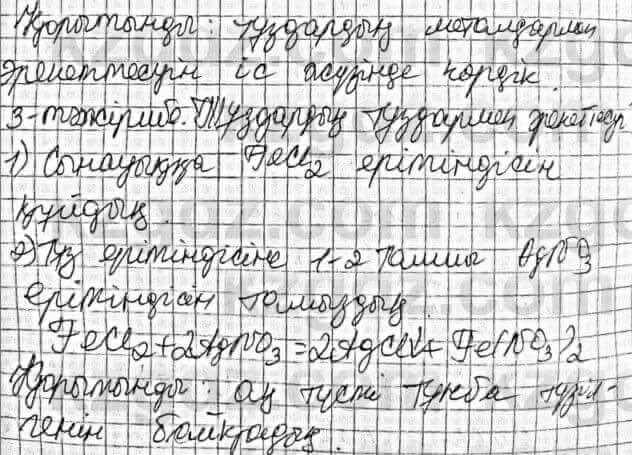 Қорытынды: тұздардың металдармен
әрекеттесуін іс жүзінде көрдік.
3-тәжірибе. Тұздардың тұздармен әрекеттесуі
1) Сынауыққа FeCl2 ерітіндісін
құйдық.
2) Тұз ерітіндісіне 1-2 тамшы AgNO3
ерітіндісін тамыздық.
FeCl2+2AgNO3=2AgCl↓+Fe(NO3)2
Қорытынды: ақ түсті тұнба түзіл-
генін байқадық.